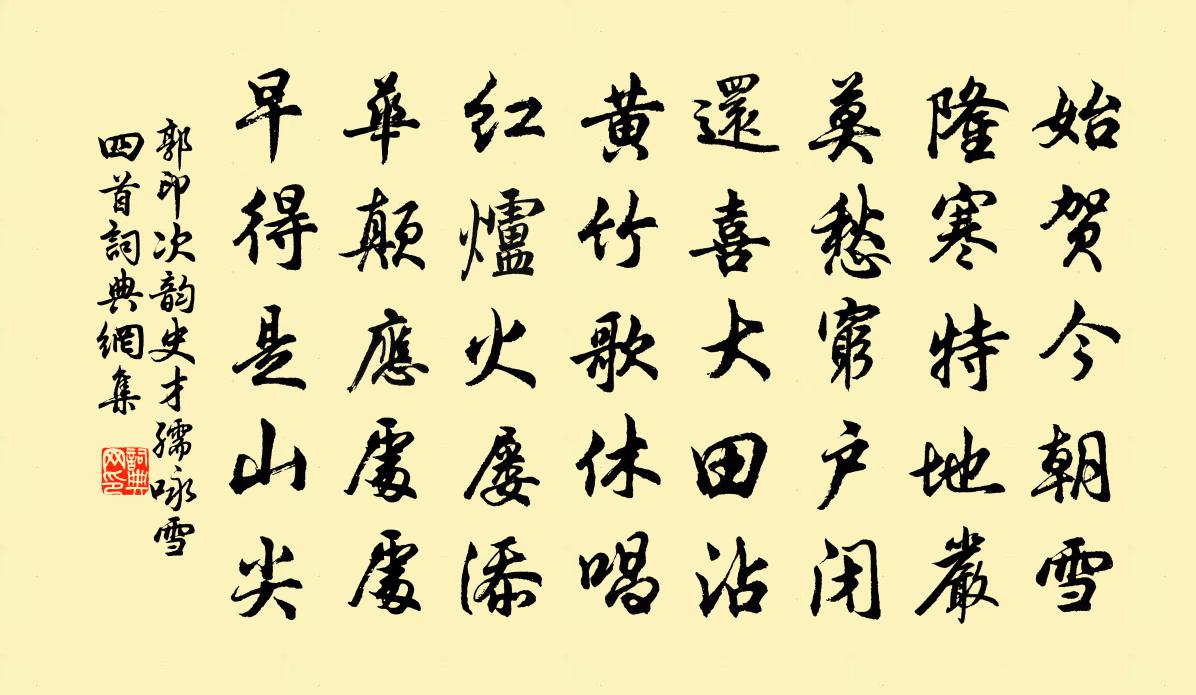 始贺今朝雪
隆寒特地嚴
莫愁窮户闭
還喜大田沾
黄竹歌休唱
红爐火屡添
華颠應處處
早得是山尖
郭印次韵史才孺咏雪
四首詞典網集
詞典
网印